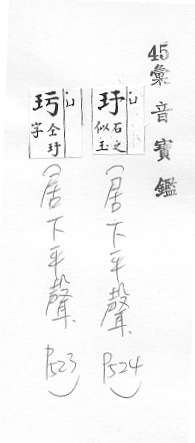 45彙音寶鑑
玗 石之似玉
(居下平聲 P524)
玙 仝玗字
(居下平聲 P523)